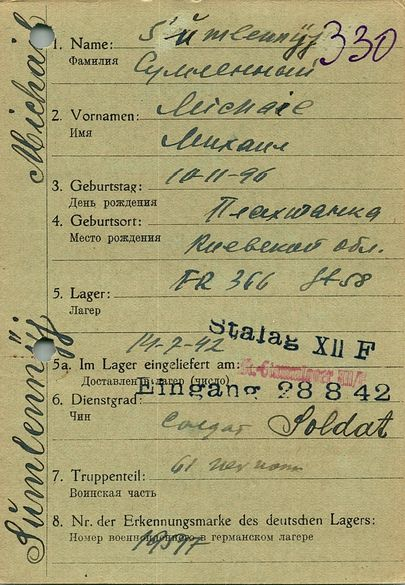 Michail
Sümlennÿj
330
1. Name: Sümlennÿj
Фамилия Сумленный
2. Vornamen: Michail
Имя Михаил
3. Geburtstag: 10-11-96
День рождения
4. Geburtsort:
Место рождения Киевской обл.
5. Lager: FR 366
Лагер
14-7-42
Stalag XII F
5a. Im Lager eingeliefert am:
Доставлен в лагер (число)
Eingang 28 8 42
6. Dienstgrad:
Чин солдат Soldat
7. Truppenteil: 61
Воинская часть
8. Nr. der Erkennungsmarke des deutschen Lagers:
Номер военнопленного в германском лагере